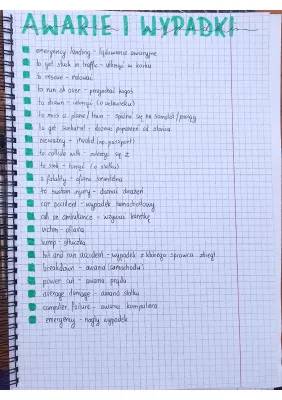 AWARIE I WYPADKI
emergency landing - lądowanie awaryjne
to get stuck in traffic - utknąć w korku
to rescue - ratować
to run sb over - przejechać kogoś
to drown - utonąć (o człowieku)
to miss a plane/train - spóźnić się na samolot/pociąg
to get sunburnt - doznać poparzeń od słońca
nieważny - invalid (np. passport)
to collide with - zderzyć się z
to sink - tonąć (o statku)
a fatality - ofiara śmiertelna
to sustain injury - doznać obrażeń
car accident - wypadek samochodowy
call an ambulance - wzywać karetkę
victim - ofiara
bump - stłuczka
hit and run accident - wypadek z którego sprawca zbiegł
breakdown - awaria (samochodu)
power cut - awaria prądu
average damage - awaria statku
computer failure - awaria komputera
emergency - nagły wypadek